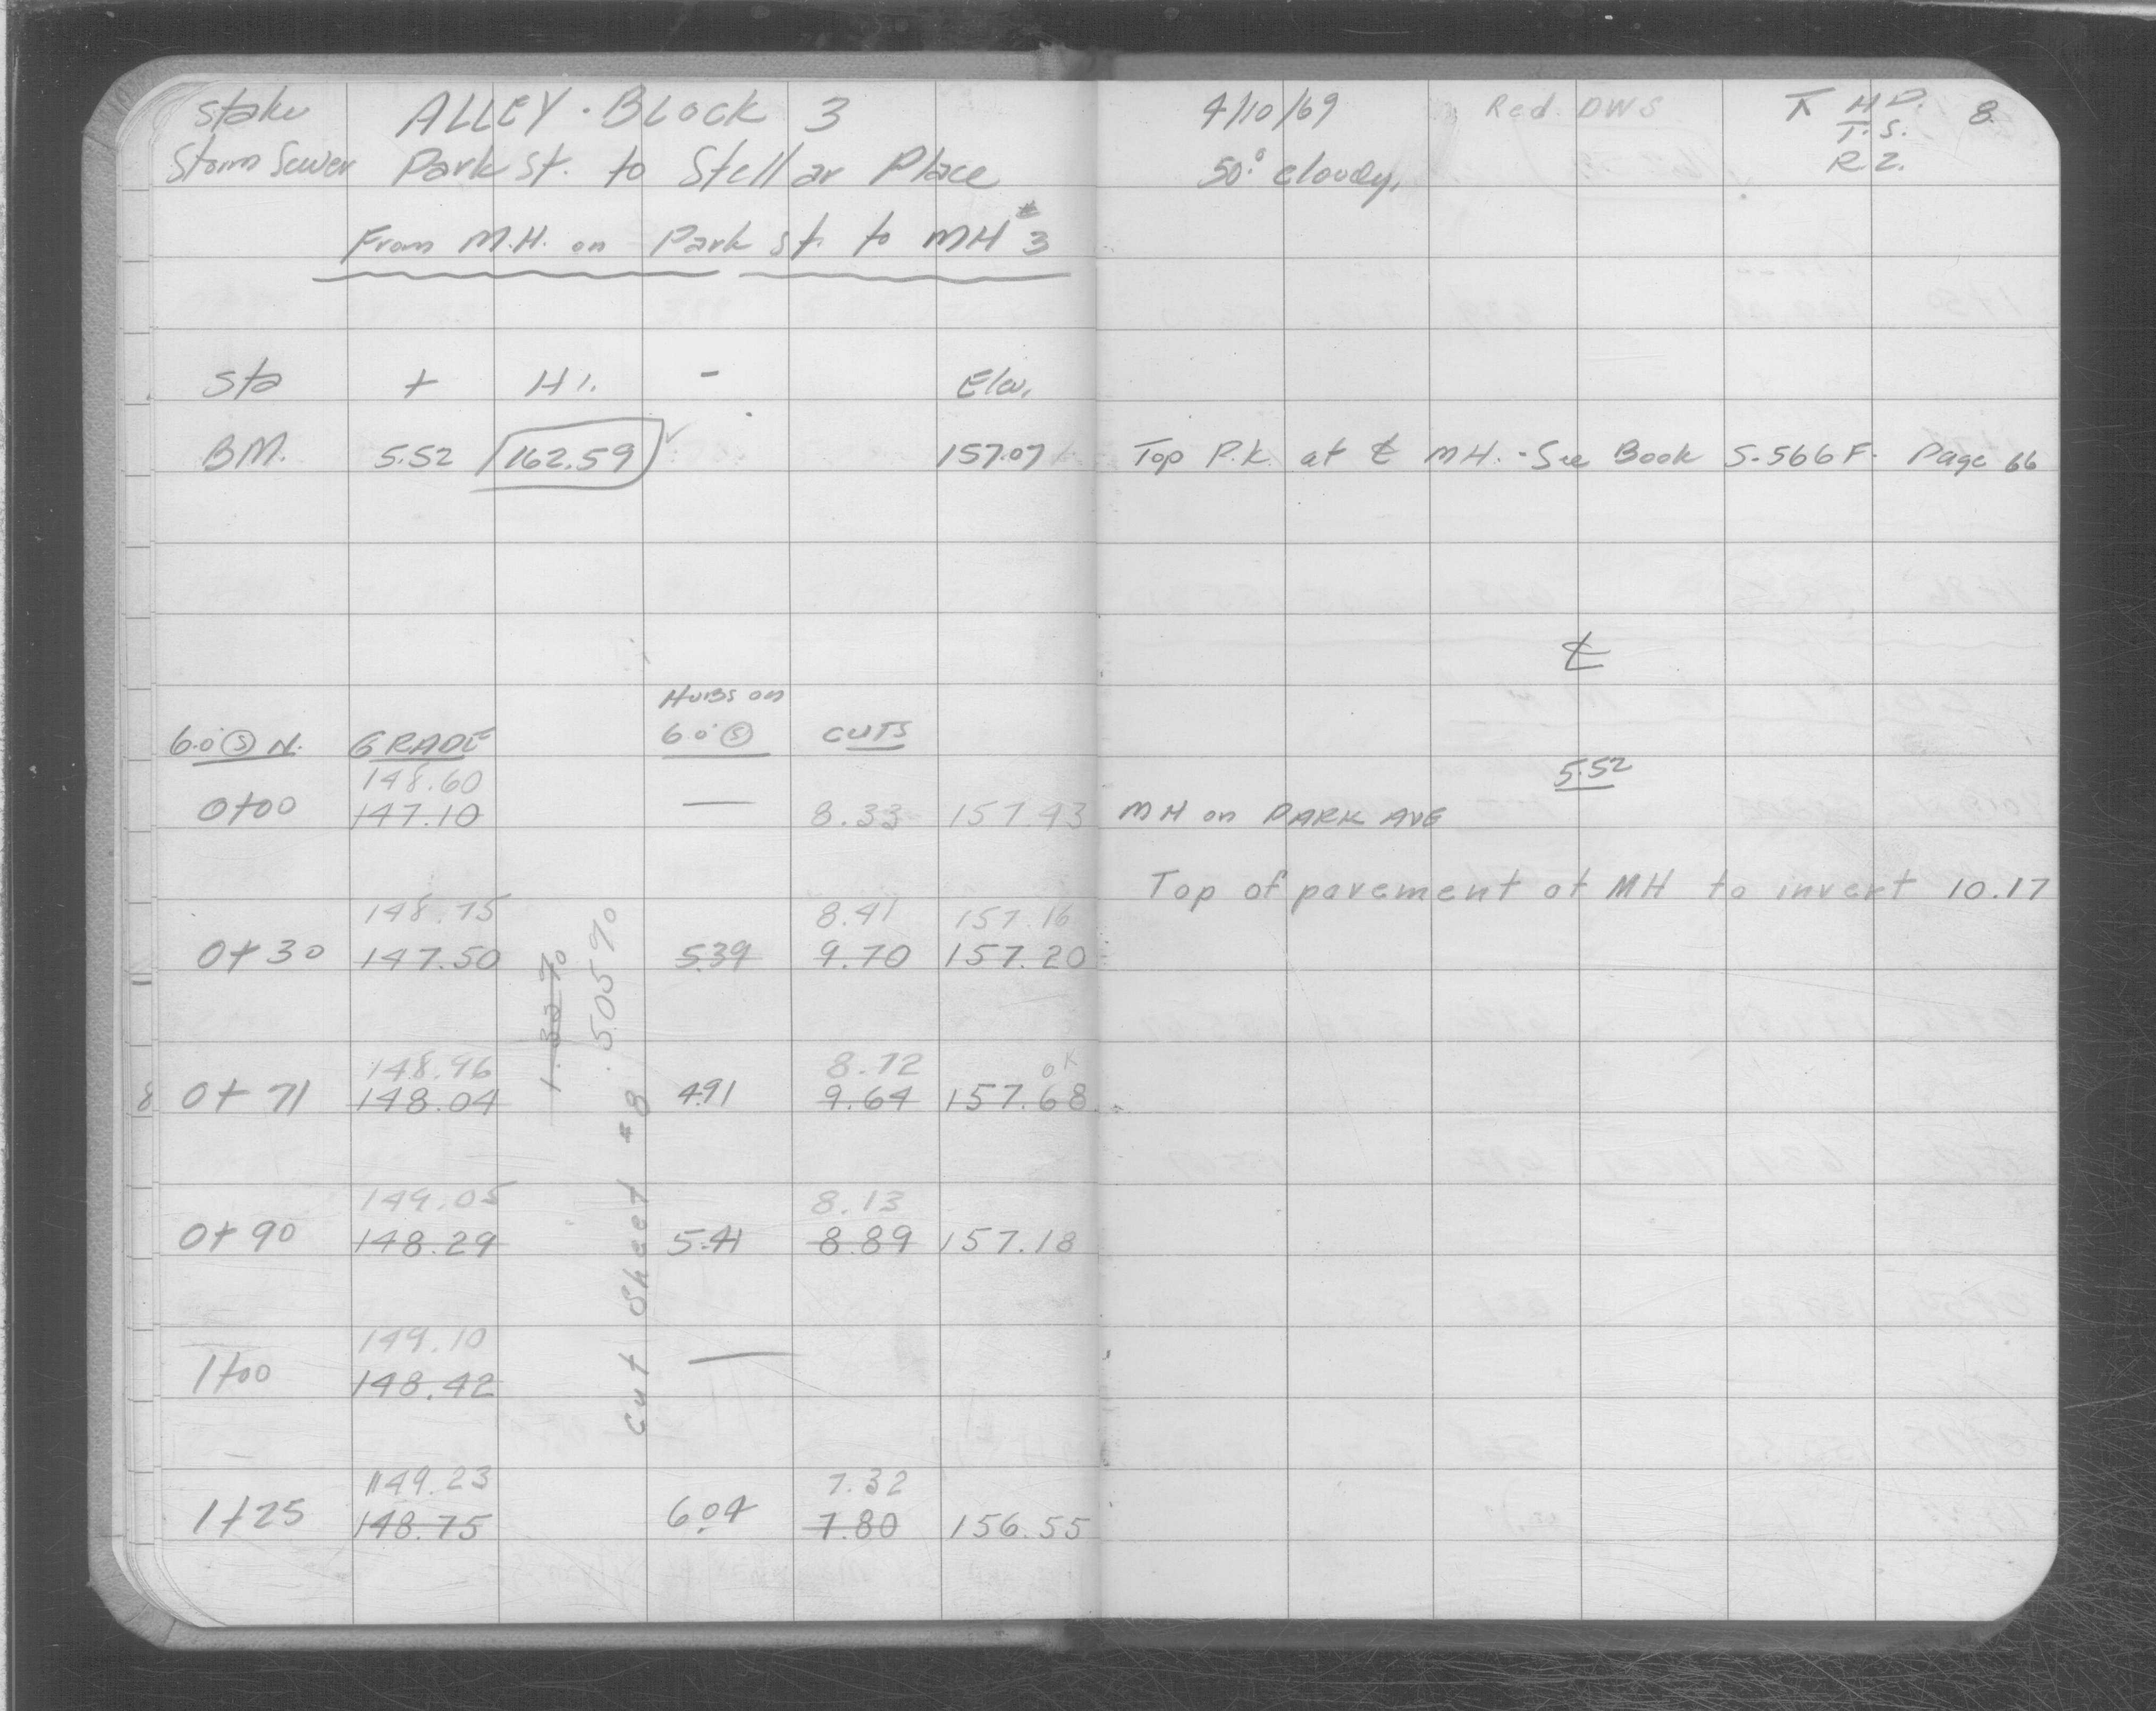 stake ALLEY - Block 3
Storm Sewer Park St. to Stellar Place
From M.H. on Park st. to MH #3
Sta + H.I. - Elev.
BM. 5.52 162.59 ✓ 157.07
Hubs on
6.0' Ⓢ N. GRADE 6.0' Ⓢ CUTS
148.60
0+00 147.10 — 8.33 157.93
148.75 8.41 157.16
0+30 147.50 5.39 9.70 157.20
1.33%
.505%
148.96 8.72 OK
0+71 148.04 4.91 9.64 157.68
Cut Sheet #8
149.05 8.13
0+90 148.29 5.41 8.89 157.18
149.10
1+00 148.42 —
149.23 7.32
1+25 148.75 6.04 7.80 156.55
8
4/10/69 Red. DWS ⊼ H.D. 8.
T.S.
50° cloudy. R.Z.
Top P.K. at ℄ MH. - See Book S-566F. Page 66
℄
5.52
MH on PARK AVE
Top of pavement at MH to invert 10.17